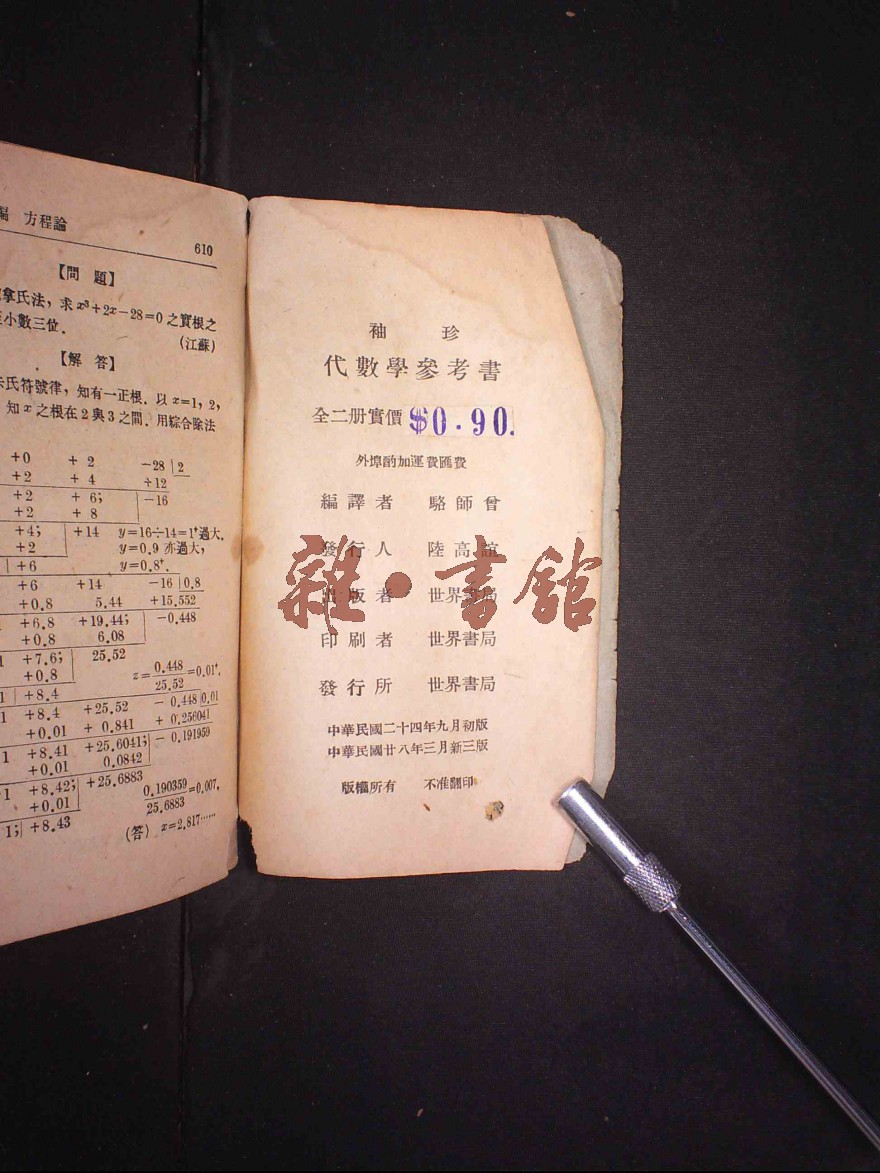 方程論
610
【問題】
拿氏法，求x³+2x−28=0之實根之
小數三位．
(江蘇)
【解答】
氏符號律，知有一正根．以x=1，2，
知x之根在2與3之間．用綜合除法
+0 +2 −28 2
+2 +4 +12
+2 +6; −16
+2 +8
+4; +14 y=16÷14=1⁺過大．
+2 y=0.9 亦過大，
+6 y=0.8⁺．
+6 +14 −16 0.8
+0.8 5.44 +15.552
+6.8 +19.44; −0.448
+0.8 6.08
1 +7.6; 25.52
+0.8 z=0.448/25.52=0.01⁺．
1 +8.4
1 +8.4 +25.52 −0.448 0.01
+0.01 +0.841 +0.256041
1 +8.41 +25.6041; −0.191959
+0.01 0.0842
1 +8.42; +25.6883
+0.01 0.190359/25.6883=0.007．
1; +8.43
(答) x=2.817……
袖珍
代數學參考書
全二册實價 $0.90.
外埠酌加運費匯費
編譯者 駱師曾
發行人 陸高誼
出版者 世界書局
印刷者 世界書局
發行所 世界書局
中華民國二十四年九月初版
中華民國廿八年三月新三版
版權所有 不准翻印
雜·書館